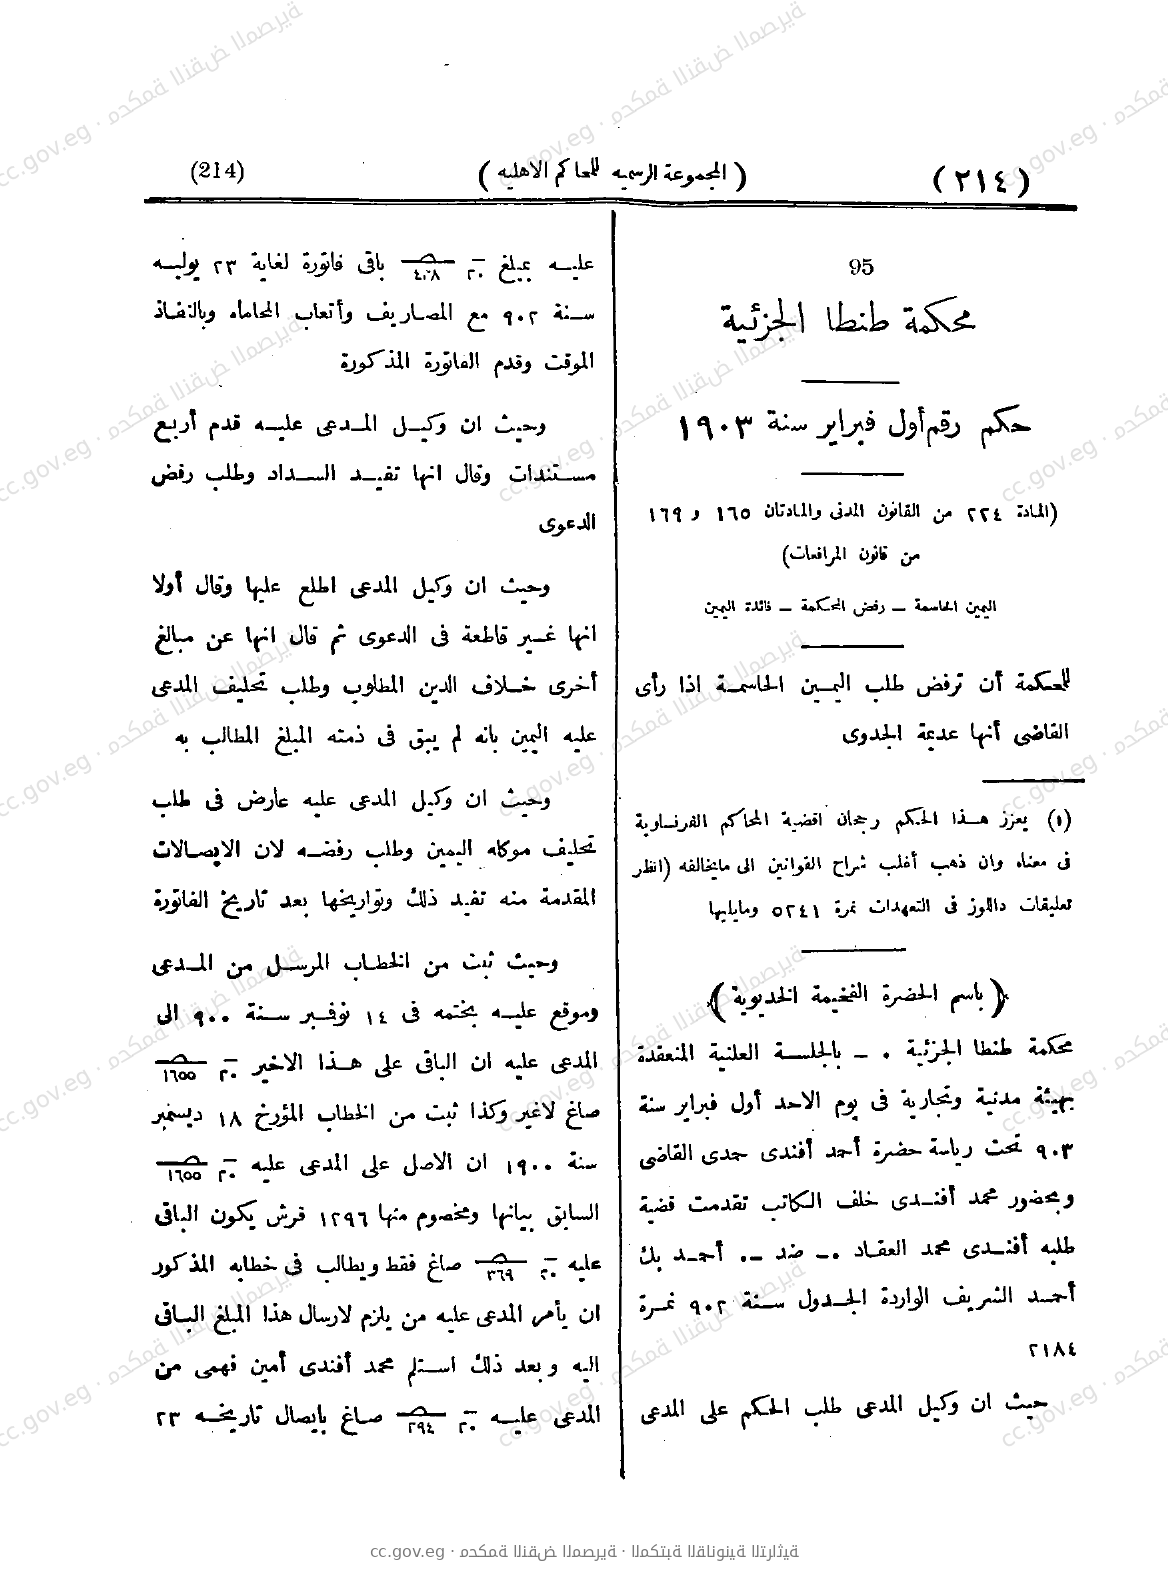 (٢١٤)
(المجموعة الرسميه للمحاكم الاهليه)
(214)
95
محكمة طنطا الجزئية
حكم رقم أول فبراير سنة ١٩٠٣
(المادة ٢٢٤ من القانون المدنى والمادتان ١٦٥ و ١٦٩
من قانون المرافعات)
اليمين الحاسمة – رفض المحكمة – فائدة اليمين
للمحكمة أن ترفض طلب اليمين الحاسمة اذا رأى
القاضى أنها عديمة الجدوى
(١) يعزز هذا الحكم رجحان اقضية المحاكم الفرنساوية
فى معناه وان ذهب أغلب شراح القوانين الى مايخالفه (انظر
تعليقات داللوز فى التعهدات نمرة ٥٢٤١ ومايليها
(باسم الحضرة الفخيمة الخديوية)
محكمة طنطا الجزئية ٠ – بالجلسة العلنية المنعقدة
بهيئة مدنية وتجارية فى يوم الاحد أول فبراير سنة
٩٠٣ تحت رياسة حضرة أحمد أفندى حمدى القاضى
وبحضور محمد أفندى خلف الكاتب تقدمت قضية
طلبه أفندى محمد العقاد ٠– ضد –٠ أحمد بك
أحمد الشريف الواردة الجدول سنة ٩٠٢ نمرة
٢١٨٤
حيث ان وكيل المدعى طلب الحكم على المدعى
عليه بمبلغ ٢٠ ٤٢٨ باقى فاتورة لغاية ٢٣ يوليه
سنة ٩٠٢ مع المصاريف وأتعاب المحاماه وبالنفاذ
الموقت وقدم الفاتورة المذكورة
وحيث ان وكيل المدعى عليه قدم أربع
مستندات وقال انها تفيد السداد وطلب رفض
الدعوى
وحيث ان وكيل المدعى اطلع عليها وقال أولا
انها غير قاطعة فى الدعوى ثم قال انها عن مبالغ
أخرى خلاف الدين المطلوب وطلب تحليف المدعى
عليه اليمين بانه لم يبق فى ذمته المبلغ المطالب به
وحيث ان وكيل المدعى عليه عارض فى طلب
تحليف موكله اليمين وطلب رفضه لان الايصالات
المقدمة منه تفيد ذلك وتواريخها بعد تاريخ الفاتورة
وحيث ثبت من الخطاب المرسل من المدعى
وموقع عليه بختمه فى ١٤ نوفمبر سنة ٩٠٠ الى
المدعى عليه ان الباقى على هذا الاخير ٢٠ ١٦٥٥
صاغ لاغير وكذا ثبت من الخطاب المؤرخ ١٨ ديسمبر
سنة ١٩٠٠ ان الاصل على المدعى عليه ٢٠ ١٦٥٥
السابق بيانها ومخصوم منها ١٢٩٦ قرش يكون الباقى
عليه ٢٠ ٣٦٩ صاغ فقط ويطالب فى خطابه المذكور
ان يأمر المدعى عليه من يلزم لارسال هذا المبلغ الباقى
اليه وبعد ذلك استلم محمد أفندى أمين فهمى من
المدعى عليه ٢٠ ٢٩٤ صاغ بايصال تاريخه ٢٣
cc.gov.eg · محكمة النقض المصرية · المكتبة القانونية التراثية